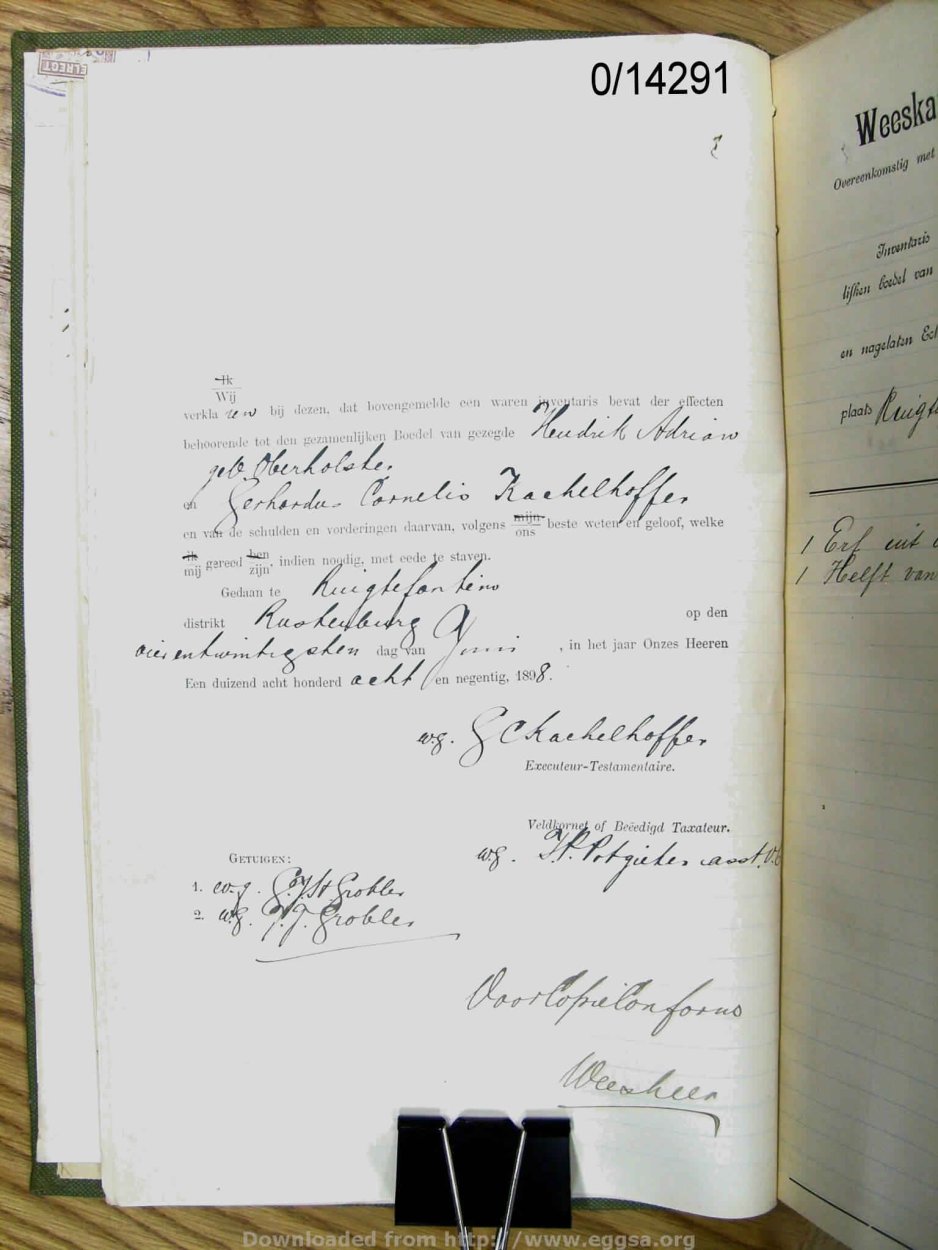 0/14291
ELRECT
Ik
Wij
verkla ren bij dezen, dat bovengemelde een waren inventaris bevat der effecten
behoorende tot den gezamenlijken Boedel van gezegde Hendrik Adrian
geb. Oberholster
en Gerhardus Cornelis Kachelhoffer
en van de schulden en vorderingen daarvan, volgens mijn ons beste weten en geloof, welke
ik mij gereed ben zijn, indien noodig, met eede te staven.
Gedaan te Ruigtefontein
distrikt Rustenburg op den
vierentwintigsten dag van Juni , in het jaar Onzes Heeren
Een duizend acht honderd acht en negentig, 1898.
w.g. G C Kachelhoffer
Executeur-Testamentaire.
Veldkornet of Beëedigd Taxateur.
w.g. Potgieter asst.
GETUIGEN:
1. w.g. Grobler
2. w.g. Grobler
Voor Copie Conform
Weesheer
Weeska
Overeenkomstig met
Inventaris
lijken boedel van
en nagelaten
plaats Ruigt
1 Erf uit
1 Helft van
Downloaded from http://www.eggsa.org